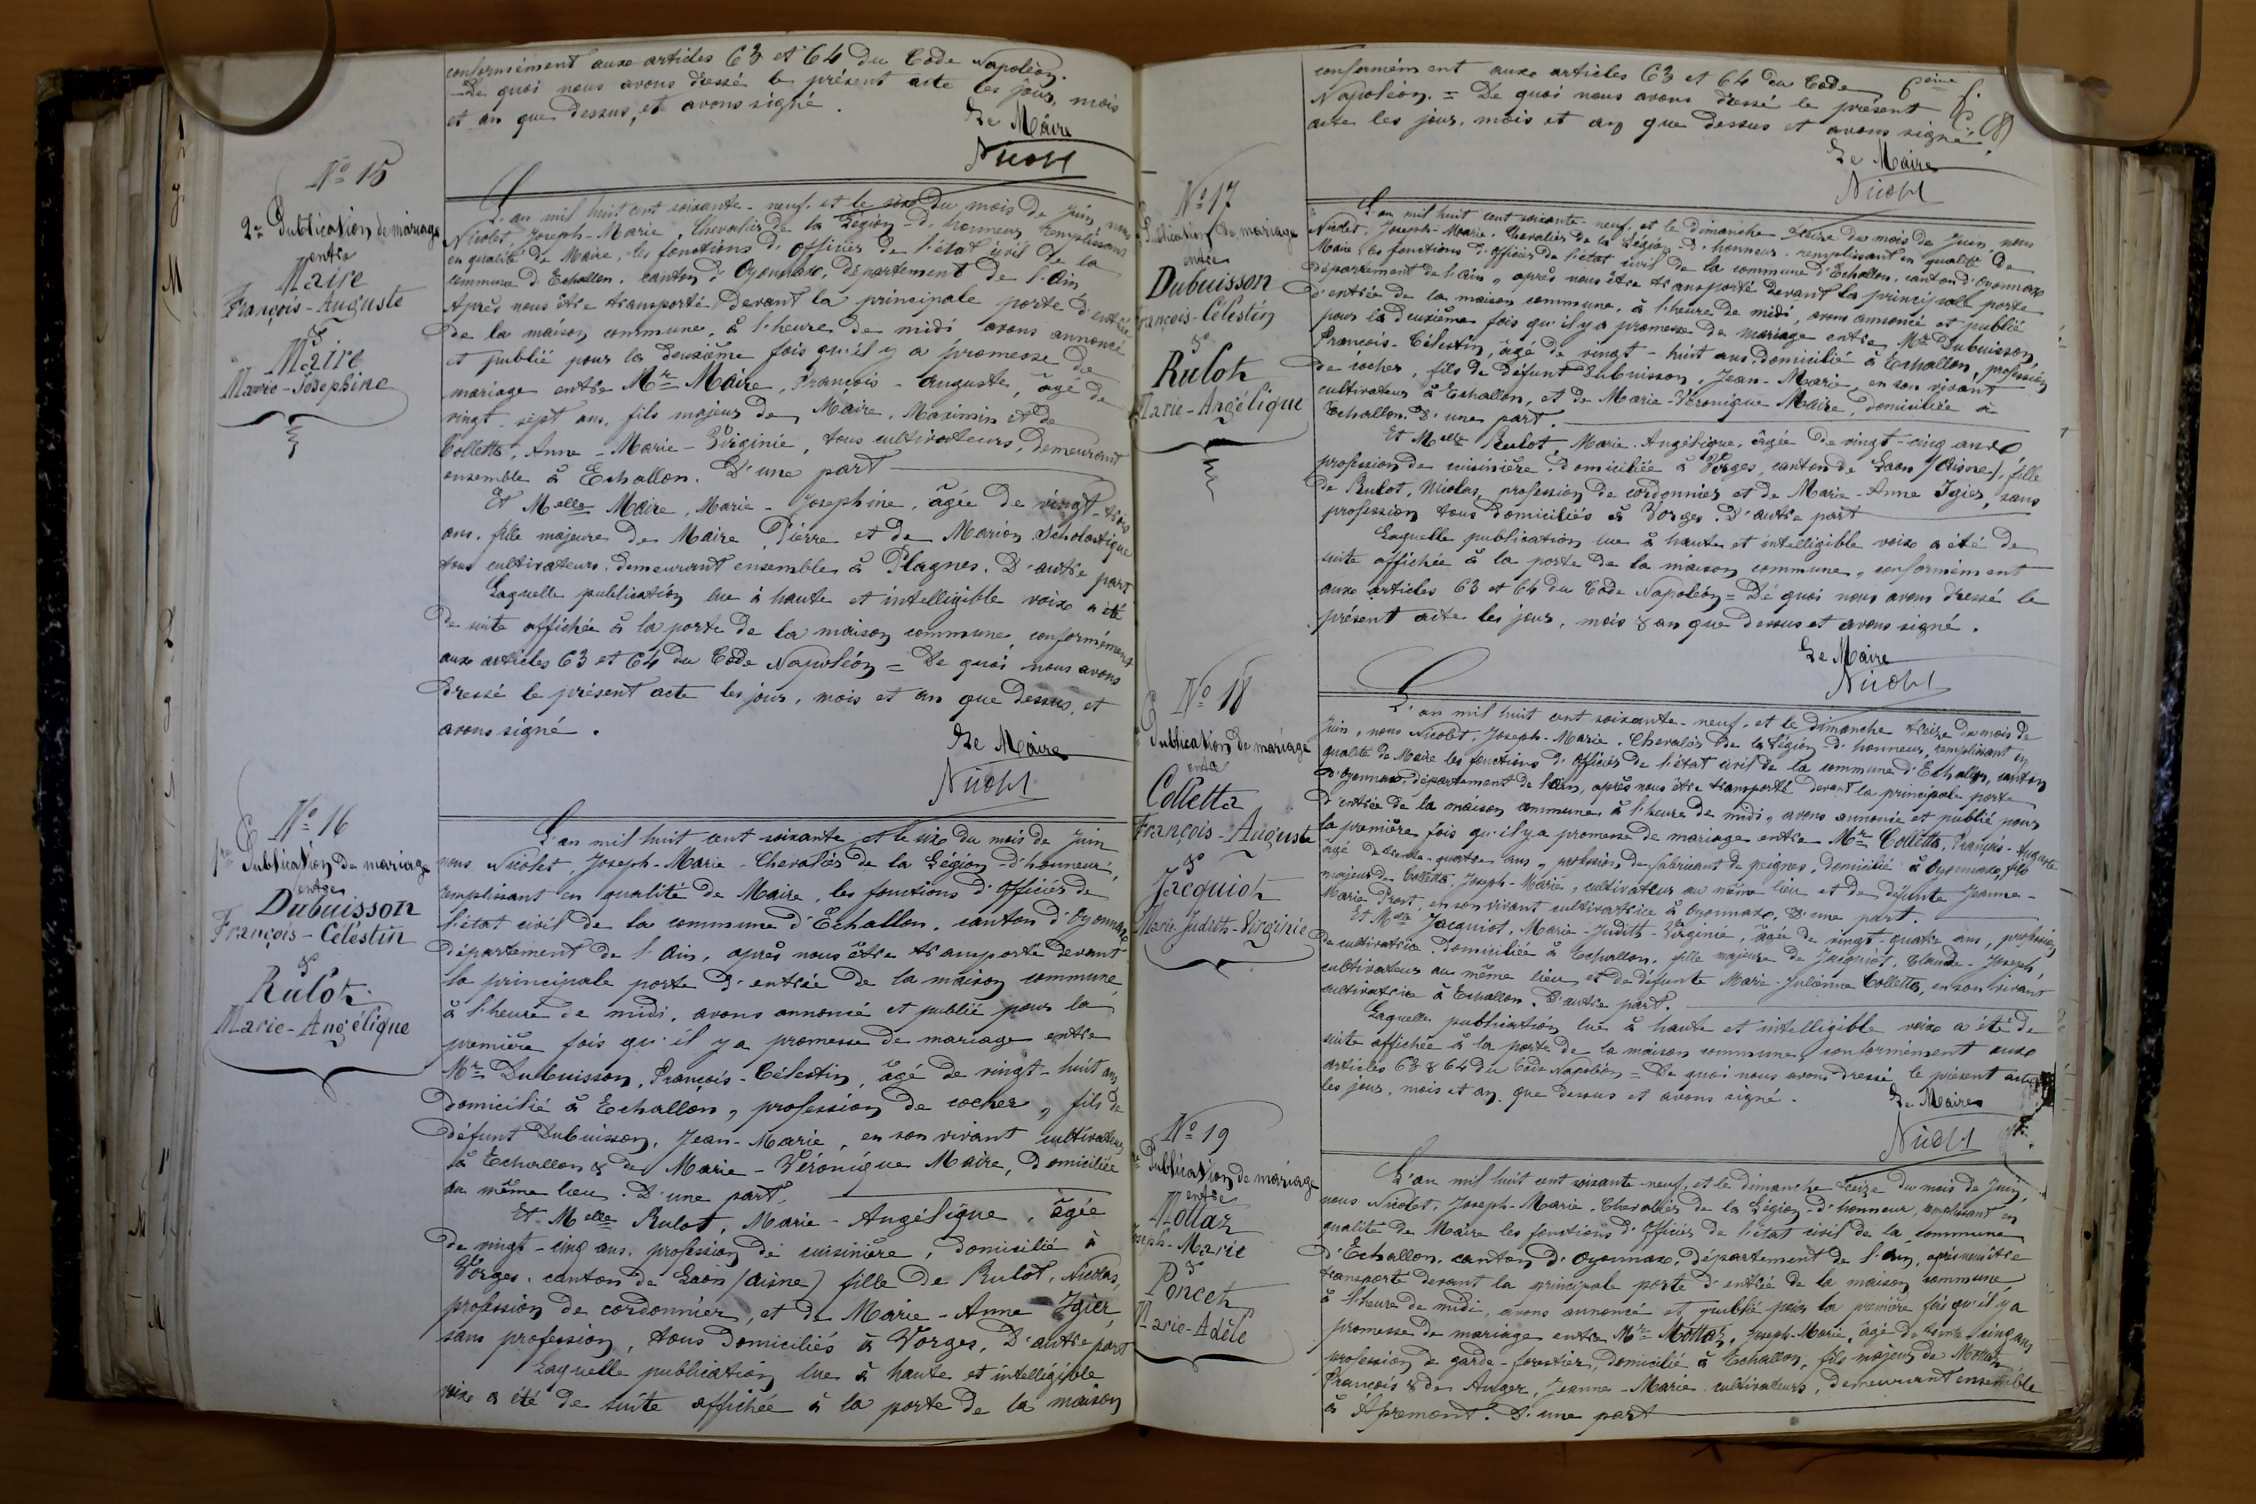 conformément aux articles 63 et 64 du Code Napoléon.
De quoi nous avons dressé le présent acte les jour, mois
et an que dessus, et avons signé.
Le Maire
Nicolet
No 15
2e Publication de mariage
entre
Maire
François-Auguste
&
Maire
Marie-Josephine
L'an mil huit cent soixante-neuf, et le six du mois de Juin, nous
Nicolet, Joseph-Marie, Chevalier de la Légion d'honneur, remplissant
en qualité de Maire, les fonctions d'Officier de l'état civil de la
commune d'Echallon, canton d'Oyonnax, département de l'Ain,
Après nous être transporté devant la principale porte d'entrée
de la maison commune, à l'heure de midi avons annoncé
et publié pour la deuxième fois qu'il y a promesse de
mariage entre Mr Maire, François-Auguste, âgé de
vingt-sept ans, fils majeur de Maire, Maximin et de
Collette, Anne-Marie-Virginie, tous cultivateurs, demeurant
ensemble à Echallon. D'une part
Et Melle Maire, Marie-Josephine, âgée de vingt-trois
ans, fille majeure de Maire Pierre et de Marion Scholastique
tous cultivateurs, demeurant ensemble à Plagnes. D'autre part
Laquelle publication lue à haute et intelligible voix a été
de suite affichée à la porte de la maison commune, conformément
aux articles 63 et 64 du Code Napoléon = De quoi nous avons
dressé le présent acte les jour, mois et an que dessus, et
avons signé.
Le Maire
Nicolet
No 16
1re Publication de mariage
entre
Dubuisson
François-Célestin
&
Rulot
Marie-Angélique
L'an mil huit cent soixante et le six du mois de Juin
nous Nicolet, Joseph-Marie-Chevalier de la Légion-d'honneur,
remplissant en qualité de Maire, les fonctions d'Officier de
l'état civil de la commune d'Echallon, canton d'Oyonnax
département de l'Ain, après nous être transporté devant
la principale porte d'entrée de la maison commune,
à l'heure de midi, avons annoncé et publié pour la
première fois qu'il y a promesse de mariage entre
Mr Dubuisson, François-Célestin, âgé de vingt-huit ans
domicilié à Echallon, profession de cocher, fils de
défunt Dubuisson, Jean-Marie, en son vivant cultivateur
à Echallon & de Marie-Véronique Maire, domiciliée
au même lieu. D'une part.
Et Melle Rulot, Marie-Angélique, âgée
de vingt-cinq ans, profession de cuisinière, domicilié à
Vorges, canton de Laon (Aisne) fille de Rulot, Nicolas,
profession de cordonnier, et de Marie-Anne Igier,
sans profession, tous domiciliés à Vorges, D'autre part
Laquelle publication lue à haute et intelligible
voix a été de suite affichée à la porte de la maison
conformément aux articles 63 et 64 du Code
Napoléon. = De quoi nous avons dressé le présent
acte les jour, mois et an que dessus et avons signé.
Le Maire
Nicolet
No 17
Publication de mariage
entre
Dubuisson
François-Célestin
&
Rulot
Marie-Angélique
L'an mil huit cent soixante-neuf, et le dimanche treize du mois de Juin, nous
Nicolet, Joseph-Marie, Chevalier de la Légion d'honneur, remplissant en qualité de
Maire les fonctions d'Officier de l'état civil de la commune d'Echallon, canton d'Oyonnax
département de l'Ain, après nous être transporté devant la principale porte
d'entrée de la maison commune, à l'heure de midi, avons annoncé et publié
pour la deuxième fois qu'il y a promesse de mariage entre Mr Dubuisson,
François-Célestin, âgé de vingt-huit ans domicilié à Echallon, profession
de cocher, fils de défunt Dubuisson, Jean-Marie, en son vivant
cultivateur à Echallon, et de Marie-Véronique Maire, domiciliée à
Echallon. D'une part.
Et Melle Rulot, Marie-Angélique, âgée de vingt-cinq ans
profession de cuisinière, domiciliée à Vorges, canton de Laon (Aisne), fille
de Rulot, Nicolas, profession de cordonnier et de Marie-Anne Igier, sans
profession tous domiciliés à Vorges. D'autre part
Laquelle publication lue à haute et intelligible voix a été de
suite affichée à la porte de la maison commune, conformément
aux articles 63 et 64 du Code Napoléon = De quoi nous avons dressé le
présent acte les jour, mois & an que dessus et avons signé.
Le Maire
Nicolet
No 18
Publication de mariage
entre
Colletta
François-Auguste
&
Jacquiot
Marie Judith-Virginie
L'an mil huit cent soixante-neuf, et le dimanche treize du mois de
Juin, nous Nicolet, Joseph-Marie, Chevalier de la Légion d'honneur, remplissant en
qualité de Maire les fonctions d'Officier de l'état civil de la commune d'Echallon, canton
d'Oyonnax, département de l'Ain, après nous être transporté devant la principale porte
d'entrée de la maison commune à l'heure de midi, avons annoncé et publié pour
la première fois qu'il y a promesse de mariage entre Mr Colletta, François-Auguste
âgé de trente-quatre ans, profession de fabricant de peignes, domicilié à Oyonnax, fils
majeur de Colletta, Joseph-Marie, cultivateur au même lieu et de défunte Jeanne-
Marie Prost, en son vivant cultivatrice à Oyonnax, D'une part.
Et Melle Jacquiot, Marie-Judith-Virginie, âgée de vingt-quatre ans, profession
de cultivatrice domiciliée à Echallon, fille majeure de Jacquiot, Claude-Joseph,
cultivateur au même lieu et de défunte Marie-Julienne Colletta, en son vivant
cultivatrice à Echallon. D'autre part.
Laquelle publication lue à haute et intelligible voix a été de
suite affichée à la porte de la maison commune, conformément aux
articles 63 & 64 du Code Napoléon = De quoi nous avons dressé le présent acte
les jour, mois et an que dessus et avons signé.
Le Maire
Nicolet
No 19
Publication de mariage
entre
Mottaz
Joseph-Marie
&
Poncet
Marie-Adèle
L'an mil huit cent soixante-neuf, et le dimanche treize du mois de Juin,
nous Nicolet, Joseph-Marie, Chevalier de la Légion-d'honneur, remplissant en
qualité de Maire les fonctions d'Officier de l'état civil de la commune
d'Echallon, canton d'Oyonnax, département de l'Ain, après nous être
transporté devant la principale porte d'entrée de la maison commune
à l'heure de midi, avons annoncé et publié pour la première fois qu'il y a
promesse de mariage entre Mr Mottaz, Joseph-Marie, âgé de trente-cinq ans
profession de garde-forestier, domicilié à Echallon, fils majeur de Mottaz
François & de Auger, Jeanne-Marie cultivateurs, demeurant ensemble
à Apremont. D'une part